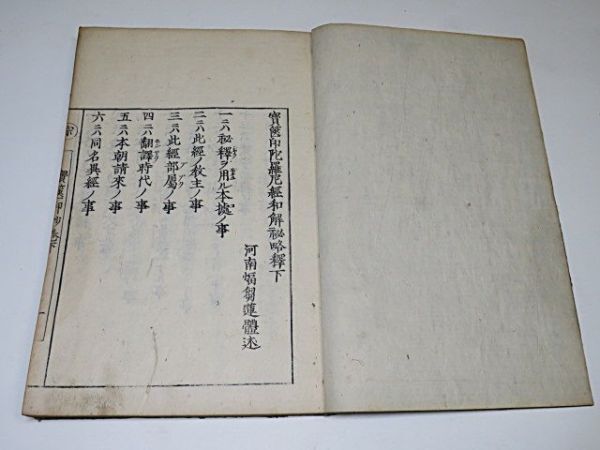 寳篋印陀羅尼經和解祕略釋下
河南蝠芻蓮體述
一ニハ秘釋ヲ用ル本據ノ事
二ニハ此經ノ教主ノ事
三ニハ此經部屬ノ事
四ニハ翻譯時代ノ事
五ニハ本朝請來ノ事
六ニハ同名異經ノ事